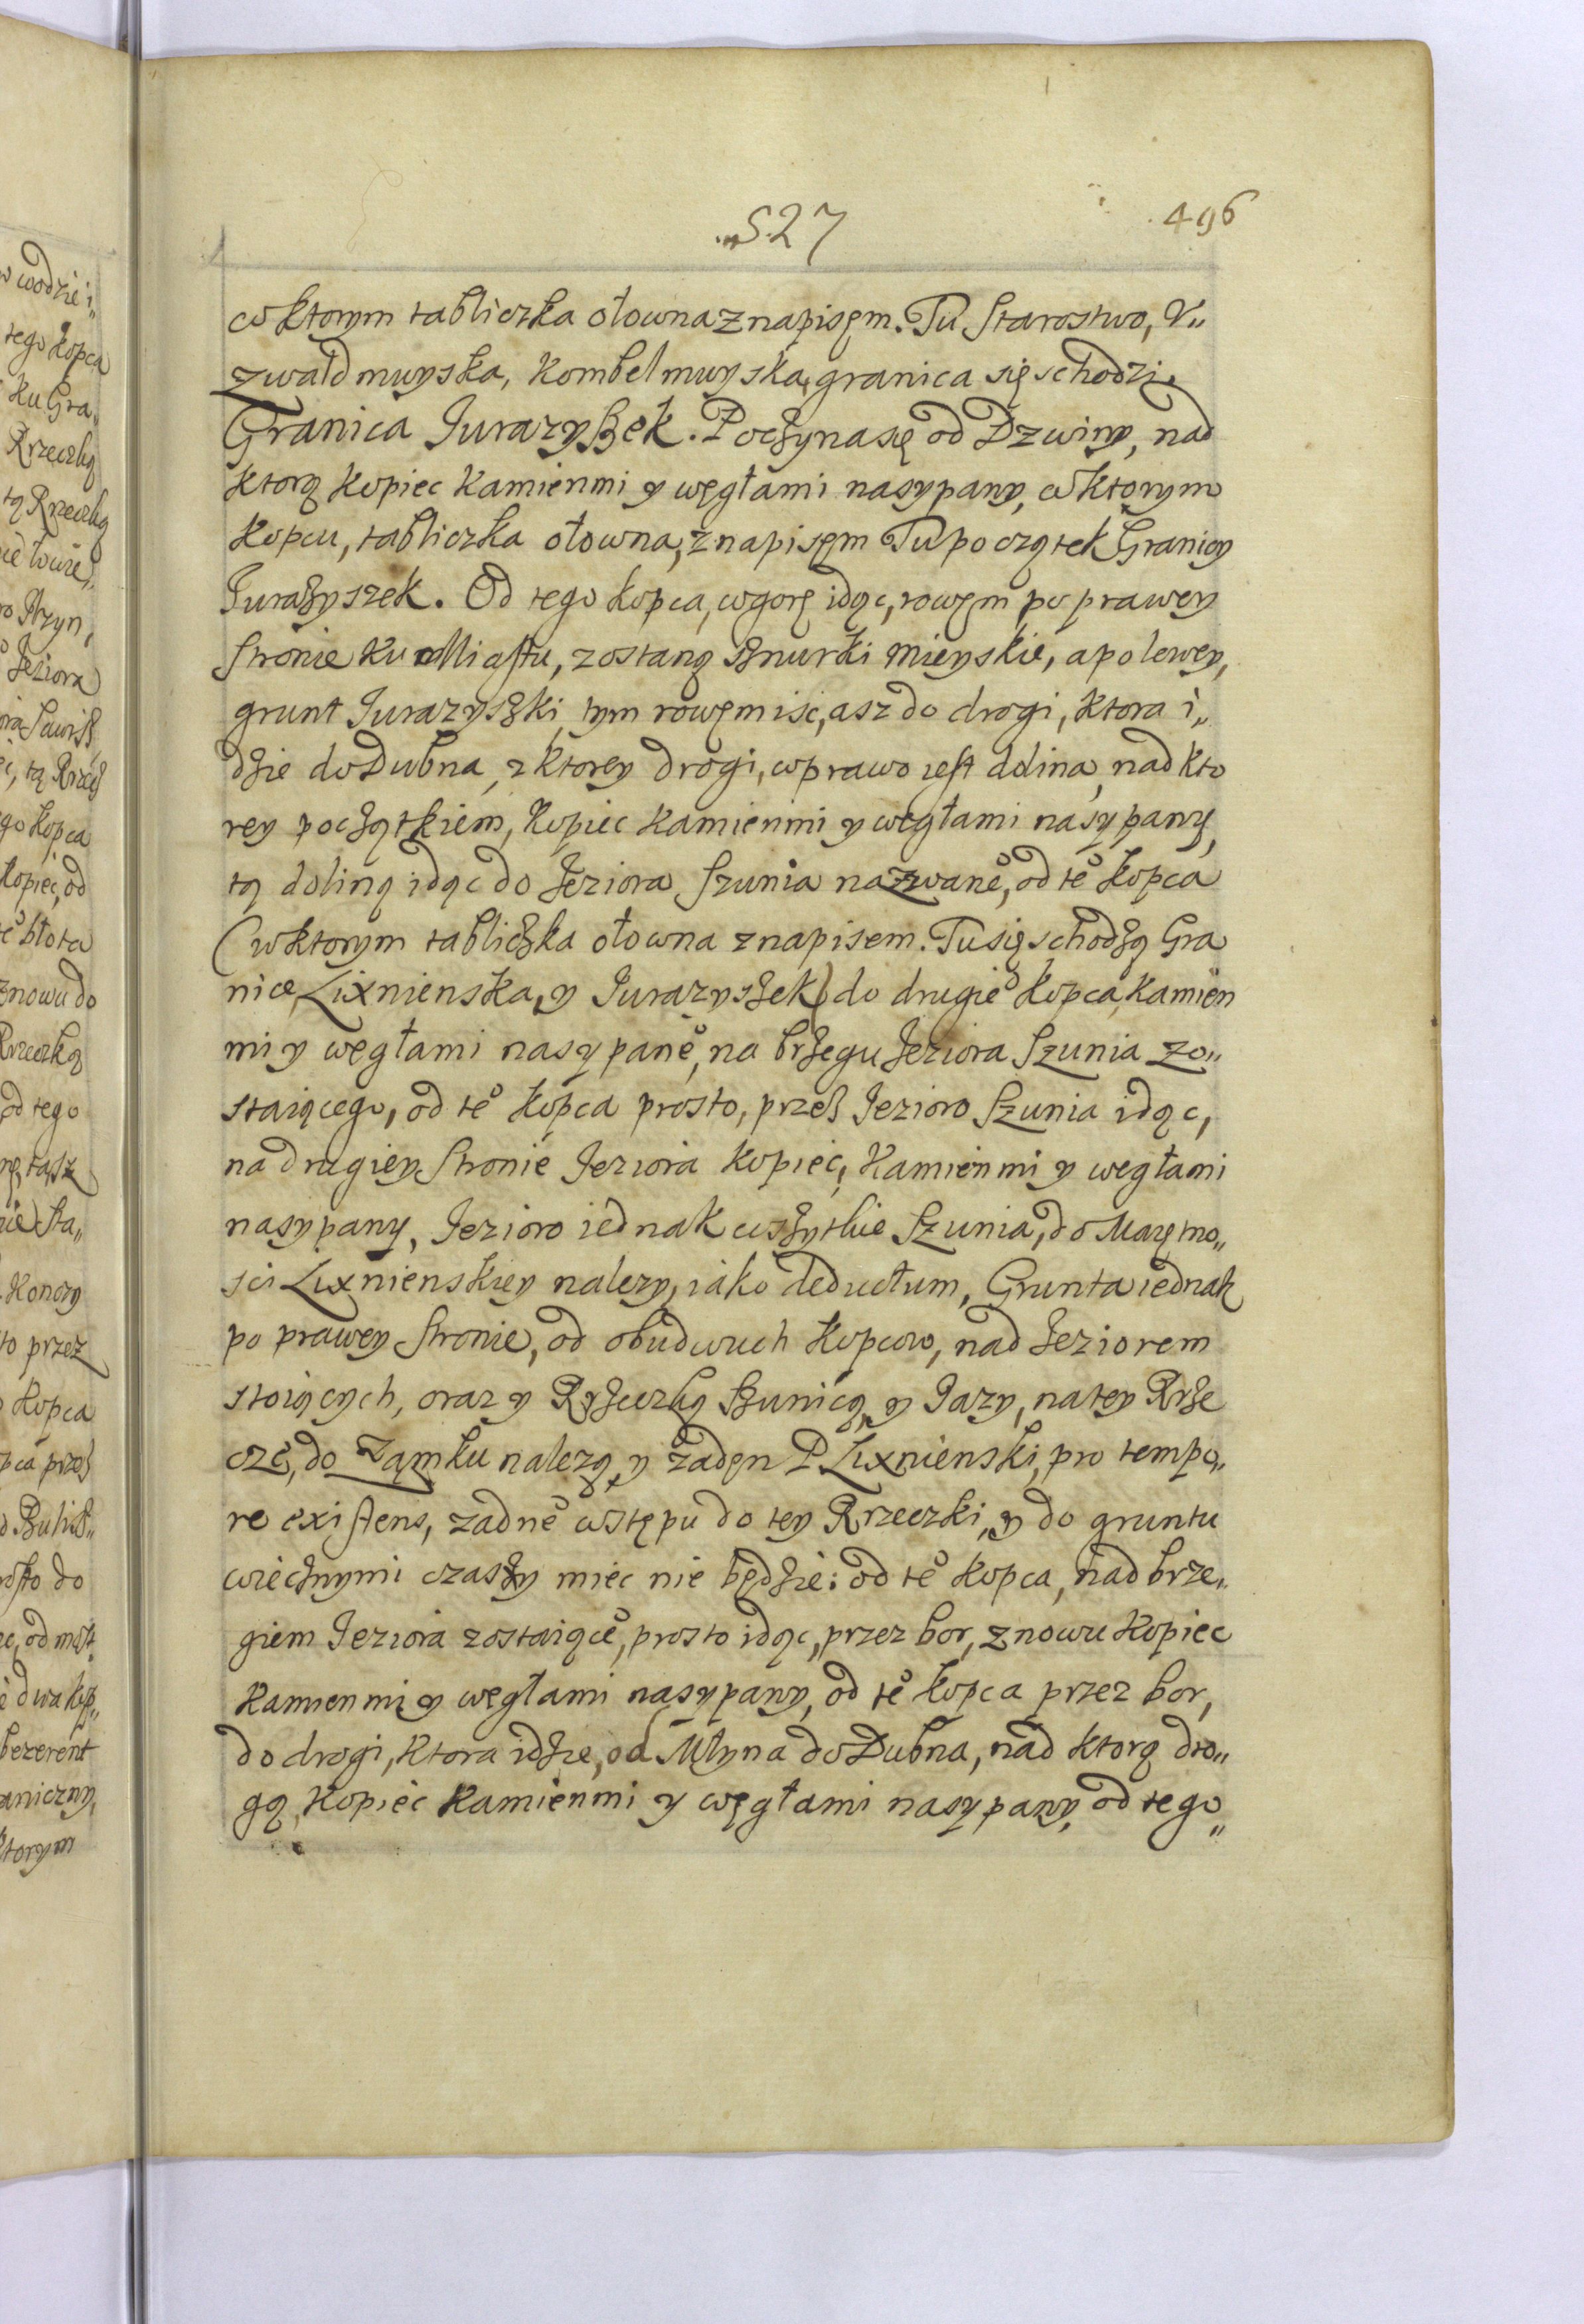 527
496
w ktorym tabliczka ołowna z napisęm. Tu Starostwo, V„
zwaldmuyska, Kombelmuyska, granica się schodzi.
Granica Jurazyszek. Poczyna się od Dzwiny, nad
ktorą kopiec kamienmi y węgłami nasypany, w ktorym
kopcu, tabliczka ołowna, z napisęm Tu początek Granicy
Jurazyszek. Od tego kopca, w gorę idąc, rowęm po prawey
stronie ku Miastu, zostaną sznurki mieyskie, a po lewey,
grunt Jurazyszki, tym rowęm isc, asz do drogi, ktora i„
dzie do Dubna, z ktorey drogi, w prawo iest dolina, nad kto
rey początkiem, kopiec kamienmi y węgłami nasypany,
tą doliną idąc do Jeziora Szunia nazwane°, od te° kopca
(w ktorym tabliczka ołowna z napisem. Tu się schodzą Gra
nice Lixnienska, y Jurazyszek) do drugie° kopca, kamien
mi y węgłami nasypane°, na brzegu Jeziora Szunia zo„
staiącego, od te° kopca prosto, przes Jezioro Szunia idąc,
na drugiey stronie Jeziora kopiec, kamienmi y wegłami
nasypany, Jezioro iednak wszytkie Szunia, do Maiętno„
sci Lixnienskiey nalezy, iako deductum, Grunta iednak
po prawey stronie, od obudwuch kopcow, nad Jeziorem
stoiących, oraz y Rzeczką Szunicą, y Jazy, na tey Rze
cze, do Zamku nalezą, y zadęn P. Lixnienski, pro tempo„
re existens, zadne° wstępu do tey Rzeczki, y do gruntu
wiecznymi czaszy miec nie będzie: od te° kopca, nad brze„
giem Jeziora zostaiące°, prosto idąc, przez bor, znowu kopiec
kamienmi y węgłami nasypany, od te° kopca przez bor,
do drogi, ktora idzie, od Młyna do Dubna, nad ktorą dro„
gą, kopiec kamienmi y węgłami nasypany, od tego„